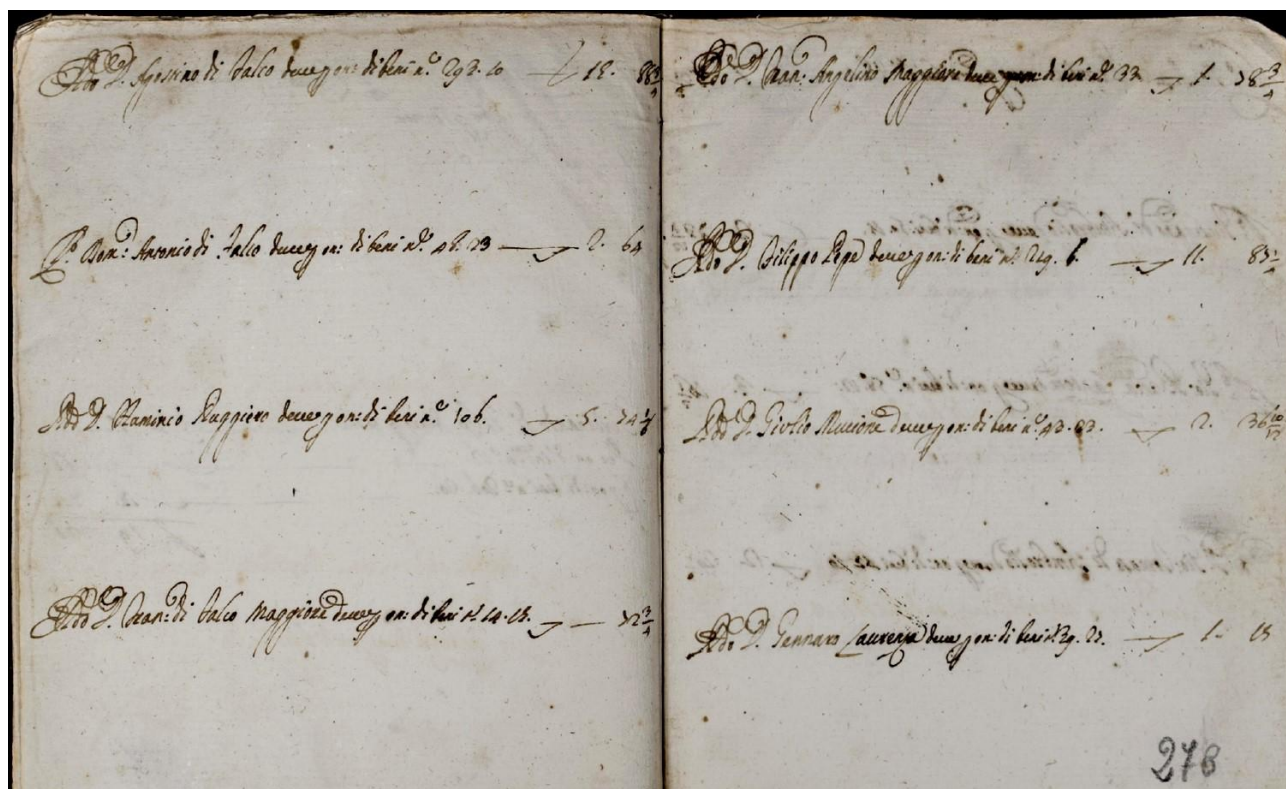 R.do D. Agostino di Falco deve per on: di beni n.º 292.10 — 15. 88
P. Dom.co Antonio di Falco deve per on: di beni n.º 48.23 — 2. 64
R.do D. Flaminio Ruggiero deve per on: di beni n.º 106. — 5. 74
R.do D. Fran: di Falco Maggiore deve per on: di beni n. 14.15. — — 72 3/4
R.do D. Fran: Angelino Maggiore deve per on: di beni n. 33 — 1. 78 3/4
R.do D. Filippo Pepe deve per on: di beni n. 219. 6. — 11. 85
R.do D. Giulio Muccione deve per on: di beni n. 43.23. — 2. 36
R.do D. Gennaro Laurenza deve per on: di beni n. 29. — 1. 15
276